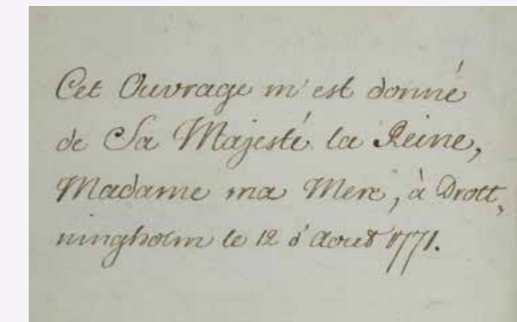 Cet Ouvrage m'est donné
de Sa Majesté la Reine,
Madame ma Mere, à Drott,
ningholm le 12 d'Aout 1771.